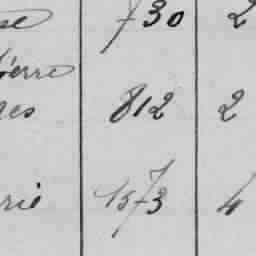 se 730 2
Pierre
nes 812 2
rie 1573 4